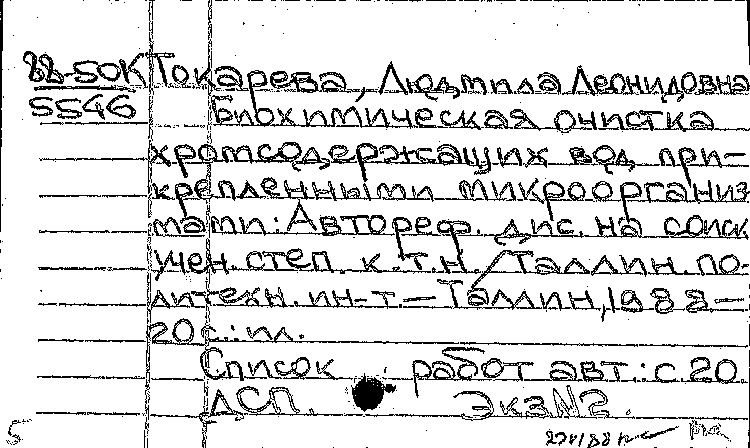 88-50К Токарева, Людмила Леонидовна
5546 Биохимическая очистка
хромсодержащих вод при-
крепленными микроорганиз
мами: Автореф. дис. на соиск
учен. степ. к.т.н. / Таллин. по-
литехн. ин-т. — Таллин, 1988 —
20 с.: ил.
Список работ авт.: с. 20.
ДСП. Экз №2.
5